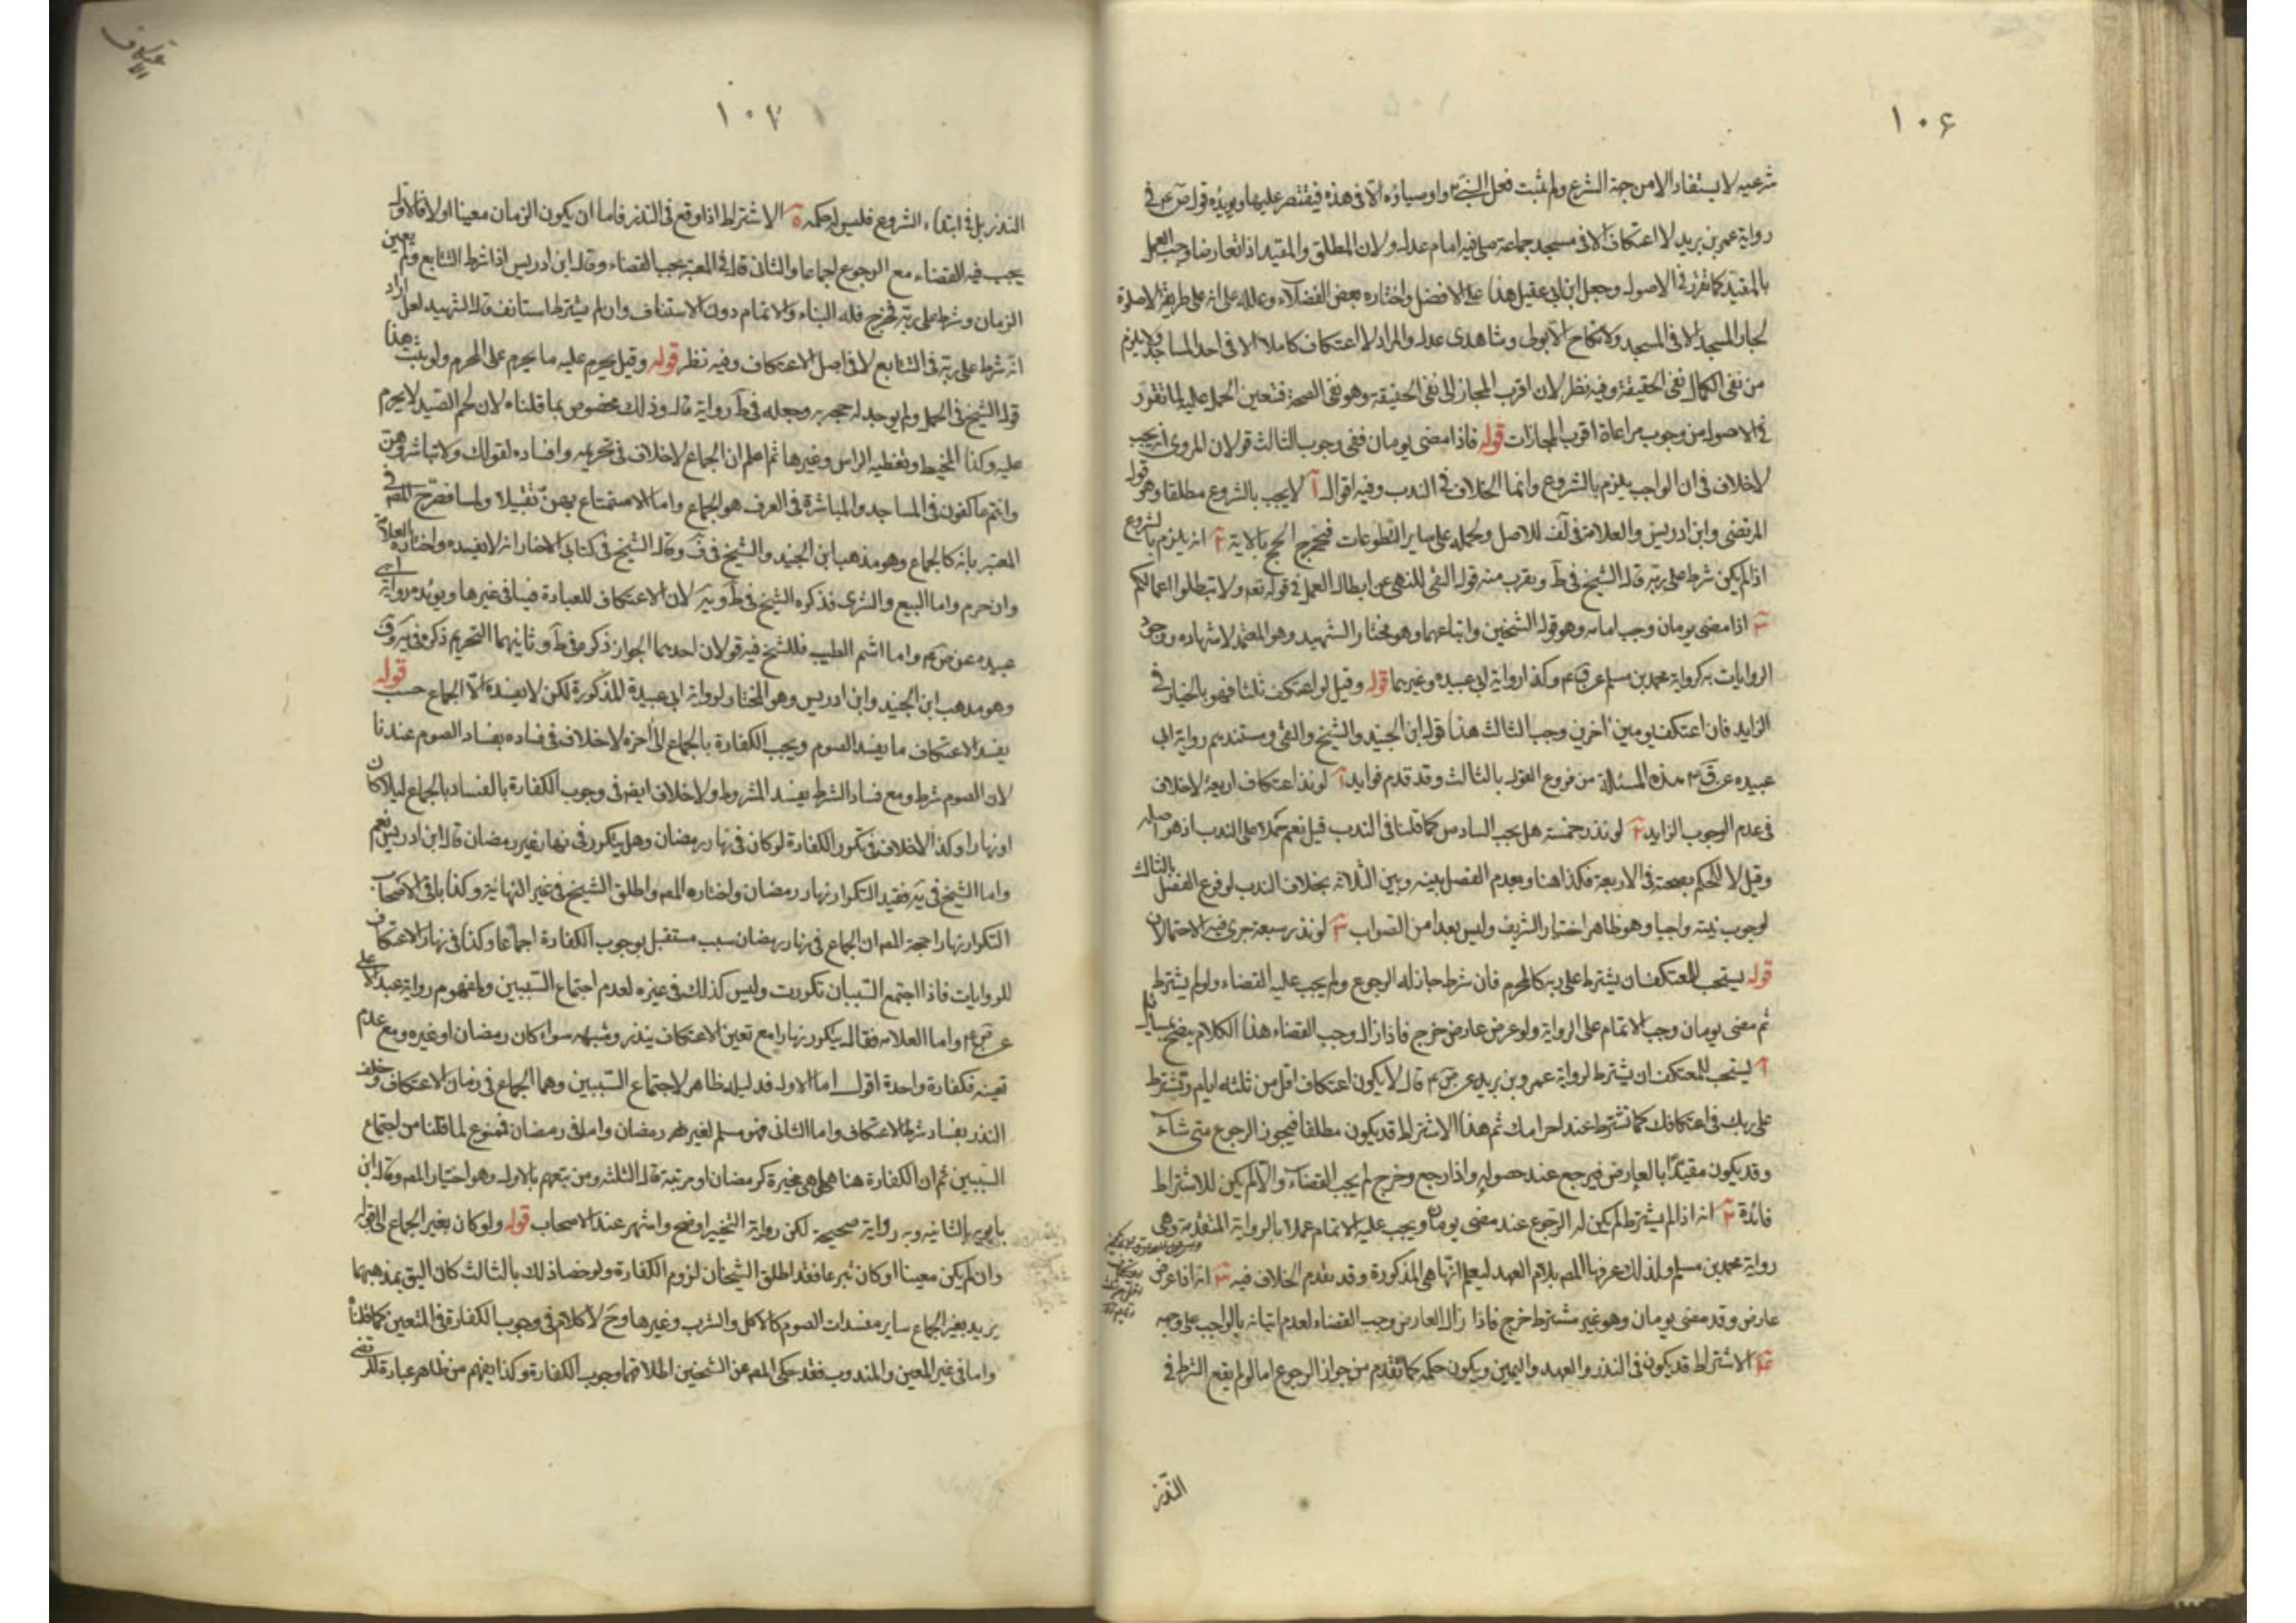 ١٠۶
شرعيه لا يستفاد الا من جهة الشرع ولم يثبت فعل النبي واوصياؤه الا في هذه فيقتصر عليها ويؤيده قول ص ع في
رواية عمر بن يزيد لا اعتكاف الا في مسجد جماعة صلى فيه امام عدل ولان المطلق والمقيد اذا تعارضا وجب العمل
بالمقيد كما تقرر في الاصول وجعل ابن ابي عقيل هذا على الافضل واختاره بعض الفضلاء وعلله على انه على طريقة لا صلوة
لجار المسجد الا في المسجد ولا نكاح الا بولي وشاهدى عدل والمراد لا اعتكاف كاملا الا في احد المساجد ولا يلزم
من نفى الكمال نفى الحقيقة وفيه نظر لان اقرب المجاز الى نفى الحقيقة وهو نفى الصحة فتعين الحمل عليه لما تقرر
في الاصول من وجوب مراعاة اقرب المجازات قوله فاذا مضى يومان ففى وجوب الثالث قولان المروى انه يجب
لا خلاف في ان الواجب يلزم بالشروع وانما الخلاف في الندب وفيه اقوال آ لا يجب بالشروع مطلقا وهو قول
المرتضى وابن ادريس والعلامة في لف للاصل ولحمله على ساير التطوعات فيخرج الحج بالاية ٢ انه يلزم بالشروع
اذا لم يكن شرط على ربه قاله الشيخ في ط ويقرب منه قول التقى للنهى عن ابطال العمل في قوله تعه ولا تبطلوا اعمالكم
٣ اذا مضى يومان وجب اتمامه وهو قول الشيخين واتباعهما وهو مختار الشهيد وهو المعتمد لاشتهاره وورود
الروايات به كرواية محمد بن مسلم عن ق ع وكذا رواية ابي عبيده وغيرهما قوله وقيل لو اعتكف ثلثا فهو بالخيار في
الزايد فان اعتكف يومين آخرين وجب الثالث هذا قول ابن الجنيد والشيخ والتقى ومستندهم رواية ابي
عبيده عن ق ع هذه المسئلة من فروع القول بالثالث وقد تقدم فوايد آ لو نذر اعتكاف اربعة لا خلاف
في عدم الوجوب الزايد ٢ لو نذر خمسة هل يجب السادس كما قلنا في الندب قيل نعم حملا على الندب اذ هو اصله
وقيل لا للحكم بصحته في الاربعة فكذا هنا ولعدم الفصل بينه وبين الثلاثه بخلاف الندب لوقوع الفصل بالثالث
لوجوب نيته واجبا وهو ظاهر اختيار الشريف وليس بعيدا من الصواب ٣ لو نذر سبعة جرى فيه الاحتمالان
قوله يستحب للمعتكف ان يشترط على ربه كالمحرم فان شرط جاز له الرجوع ولم يجب عليه القضاء ولو لم يشترط
ثم مضى يومان وجب الاتمام على الرواية ولو عرض عارض خرج فاذا زال وجب القضاء هذا الكلام يتضح بمسايل
آ يستحب للمعتكف ان يشترط لرواية عمر بن يزيد عن ص ع قال لا يكون اعتكاف اقل من ثلثه ايام وتشترط
على ربك في اعتكافك كما تشترط عند احرامك ثم هذا الاشتراط قد يكون مطلقا فيجوز الرجوع متى شاء
وقد يكون مقيدا بالعارض فيرجع عند حصوله واذا رجع وخرج لم يجب القضاء والا لم يكن للاشتراط
فائدة ٢ انه اذا لم يشترط لم يكن له الرجوع عند مضى يومان ويجب عليه الاتمام عملا بالرواية المتقدمة وهى
رواية محمد بن مسلم ولذلك عرفها المصه بلام العهد ليعلم انها هى المذكورة وقد تقدم الخلاف فيه ٣ انه اذا عرض
عارض وقد مضى يومان وهو غير مشترط خرج فاذا زال العارض وجب القضاء لعدم اتيانه بالواجب على وجهه
٤ الاشتراط قد يكون في النذر والعهد واليمين ويكون حكمه كما تقدم من جواز الرجوع اما لو لم يقع الشرط في
النذر
١٠٧
الاعتكاف
النذر بل في ابتداء الشروع فليس له حكمه ٥ الاشتراط اذا وقع في النذر فاما ان يكون الزمان معينا اولا فالاول
يجب فيه القضاء مع الرجوع اجماعا والثانى قال في المعتبر يجب القضاء وقال ابن ادريس اذا شرط التتابع ولم يعين
الزمان وشرط على ربه فخرج فله البناء والاتمام دون الاستيناف وان لم يشترط استانف قال الشهيد لعل اراد
انه شرط على ربه في التتابع لا في اصل الاعتكاف وفيه نظر قوله وقيل يحرم عليه ما يحرم على المحرم ولم يثبت هذا
قول الشيخ في الجمل ولم يوجد له حجه وجعله في ط رواية قال وذلك مخصوص بما قلناه لان لحم الصيد لا يحرم
عليه وكذا المخيط وتغطيه الراس وغيرها ثم اعلم ان الجماع لا خلاف في تحريمه وافساده لقوله ولا تباشروهن
وانتم عاكفون في المساجد والمباشرة في العرف هو الجماع واما الاستمتاع بهن تقبيلا ولمسا فصرح المصه في
المعتبر بانه كالجماع وهو مذهب ابن الجنيد والشيخ في ف وقال الشيخ في كتابى الاخبار انه لا يفسده واختاره العلامة
وان حرم واما البيع والشرى فذكره الشيخ في ط و يه لان الاعتكاف للعبادة فينافى غيرها ويؤيده رواية ابى
عبيده عن ص ع واما اشم الطيب فللشيخ فيه قولان احدهما الجواز ذكره في ط وثانيهما التحريم ذكره في يه و ف
وهو مذهب ابن الجنيد وابن ادريس وهو المختار لرواية ابى عبيدة المذكورة لكن لا يفسده الا الجماع حسب قوله
يفسد الاعتكاف ما يفسد الصوم ويجب الكفارة بالجماع الى آخره لا خلاف في فساده بفساد الصوم عندنا
لان الصوم شرط ومع فساد الشرط يفسد المشروط ولا خلاف ايضه في وجوب الكفارة بالفساد بالجماع ليلا كان
او نهارا وكذا لا خلاف في تكرر الكفارة لو كان في نهار رمضان وهل يتكرر في نهار غير رمضان قال ابن ادريس نعم
واما الشيخ في يه فقيد التكرار نهار رمضان واختاره المصه واطلق الشيخ في غير النهاية وكذا باقى الاصحاب
التكرار نهارا حجة المصه ان الجماع في نهار رمضان سبب مستقبل بوجوب الكفارة اجماعا وكذا في نهار الاعتكاف
للروايات فاذا اجتمع السببان تكررت وليس كذلك في غيره لعدم اجتماع السببين ولمفهوم رواية عبد الاعلى
عن ص ع واما العلامه فقال يتكرر نهارا مع تعين الاعتكاف بنذر وشبهه سواء كان رمضان او غيره ومع عدم
تعينه فكفارة واحدة اقول اما الاول فدليله ظاهر لاجتماع السببين وهما الجماع في زمان الاعتكاف وخلف
النذر بفساد شرط الاعتكاف واما الثانى فهو مسلم لغير شهر رمضان واما في رمضان فممنوع لما قلنا من اجتماع
السببين ثم ان الكفارة هنا هل هى مخيرة كرمضان او مرتبة قال الثلثه ومن تبعهم بالاول وهو اختيار المصه وقال ابن
بابويه بالثانيه وبه رواية صحيحة لكن رواية التخيير اوضح واشهر عند الاصحاب قوله ولو كان بغير الجماع الى قوله
وان لم يكن معينا او كان تبرعا فقد اطلق الشيخان لزوم الكفارة ولو خصا ذلك بالثالث كان اليق بمذهبهما
يريد بغير الجماع ساير مفسدات الصوم كالاكل والشرب وغيرها وح لا كلام في وجوب الكفارة في المتعين كما قلناه
واما في غير المعين والمندوب فقد حكى المصه عن الشيخين اطلاقهما وجوب الكفارة وكذا يفهم من ظاهر عبارة المرتضى